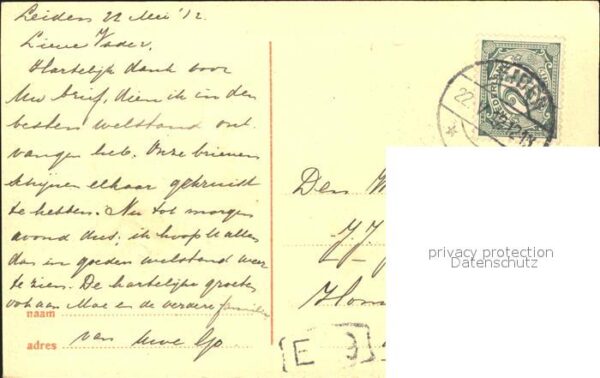 Leiden 22 Mei '12.
Lieve Vader,
Hartelijk dank voor
Uw brief, dien ik in den
besten welstand ont
vangen heb. Onze brieven
schijnen elkaar gekruist
te hebben. Nu tot morgen
avond dus; ik hoop U allen
dan in goeden welstand weer
te zien. De hartelijke groeten
ook aan Moe en de verdere familie
naam
van uwe
adres
LEIDEN
22.
2
Den
J.J.
Hom
E 3
privacy protection
Datenschutz